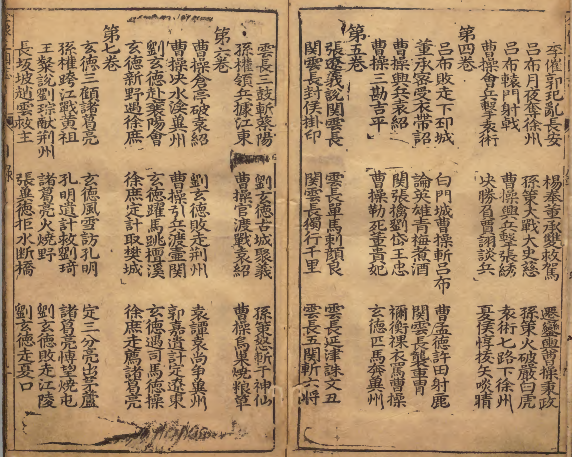 李傕郭汜亂長安 楊奉董承救駕 遷鑾輿曹操秉政
呂布月夜奪徐州 孫策大戰太史慈 孫策火破嚴白虎
呂布轅門射戟 曹操興兵擊張綉 袁術七路下徐州
曹操會兵擊袁術 決勝負賈詡談兵 夏侯惇拔矢啖睛
第四卷
呂布敗走下邳城 白門城曹操斬呂布 曹孟德許田射鹿
董承密受衣帶詔 論英雄青梅煮酒 關雲長襲車冑
曹操興兵擊袁紹 關張擒劉岱王忠 禰衡裸衣罵曹操
曹操三勘吉平 曹操勒死董貴妃 玄德匹馬奔冀州
第五卷
張遼義說關雲長 雲長單馬刺顏良 雲長延津誅文丑
関雲長封侯掛印 関雲長獨行千里 雲長五関斬六將
雲長三鼓斬蔡陽 劉玄德古城聚義 孫策怒斬于神仙
孫權領兵據江東 曹操官渡戰袁紹 曹操烏巢燒粮草
第六卷
曹操倉亭破袁紹 劉玄德敗走荊州 袁譚袁尚爭冀州
曹操决水渰冀州 曹操引兵渡壺関 郭嘉遺計定遼東
劉玄德赴襄陽會 玄德躍馬跳檀溪 玄德遇司馬德操
玄德新野遇徐庶 徐庶定計取樊城 徐庶走薦諸葛亮
第七卷
玄德三顧諸葛亮 玄德風雪訪孔明 定三分亮出茅廬
孫權跨江戰黃祖 孔明遺計救劉琦 諸葛亮博望燒屯
王粲說劉琮獻荊州 諸葛亮火燒野 劉玄德敗走江陵
長坂坡趙雲救主 張益德拒水断橋 劉玄德走夏口